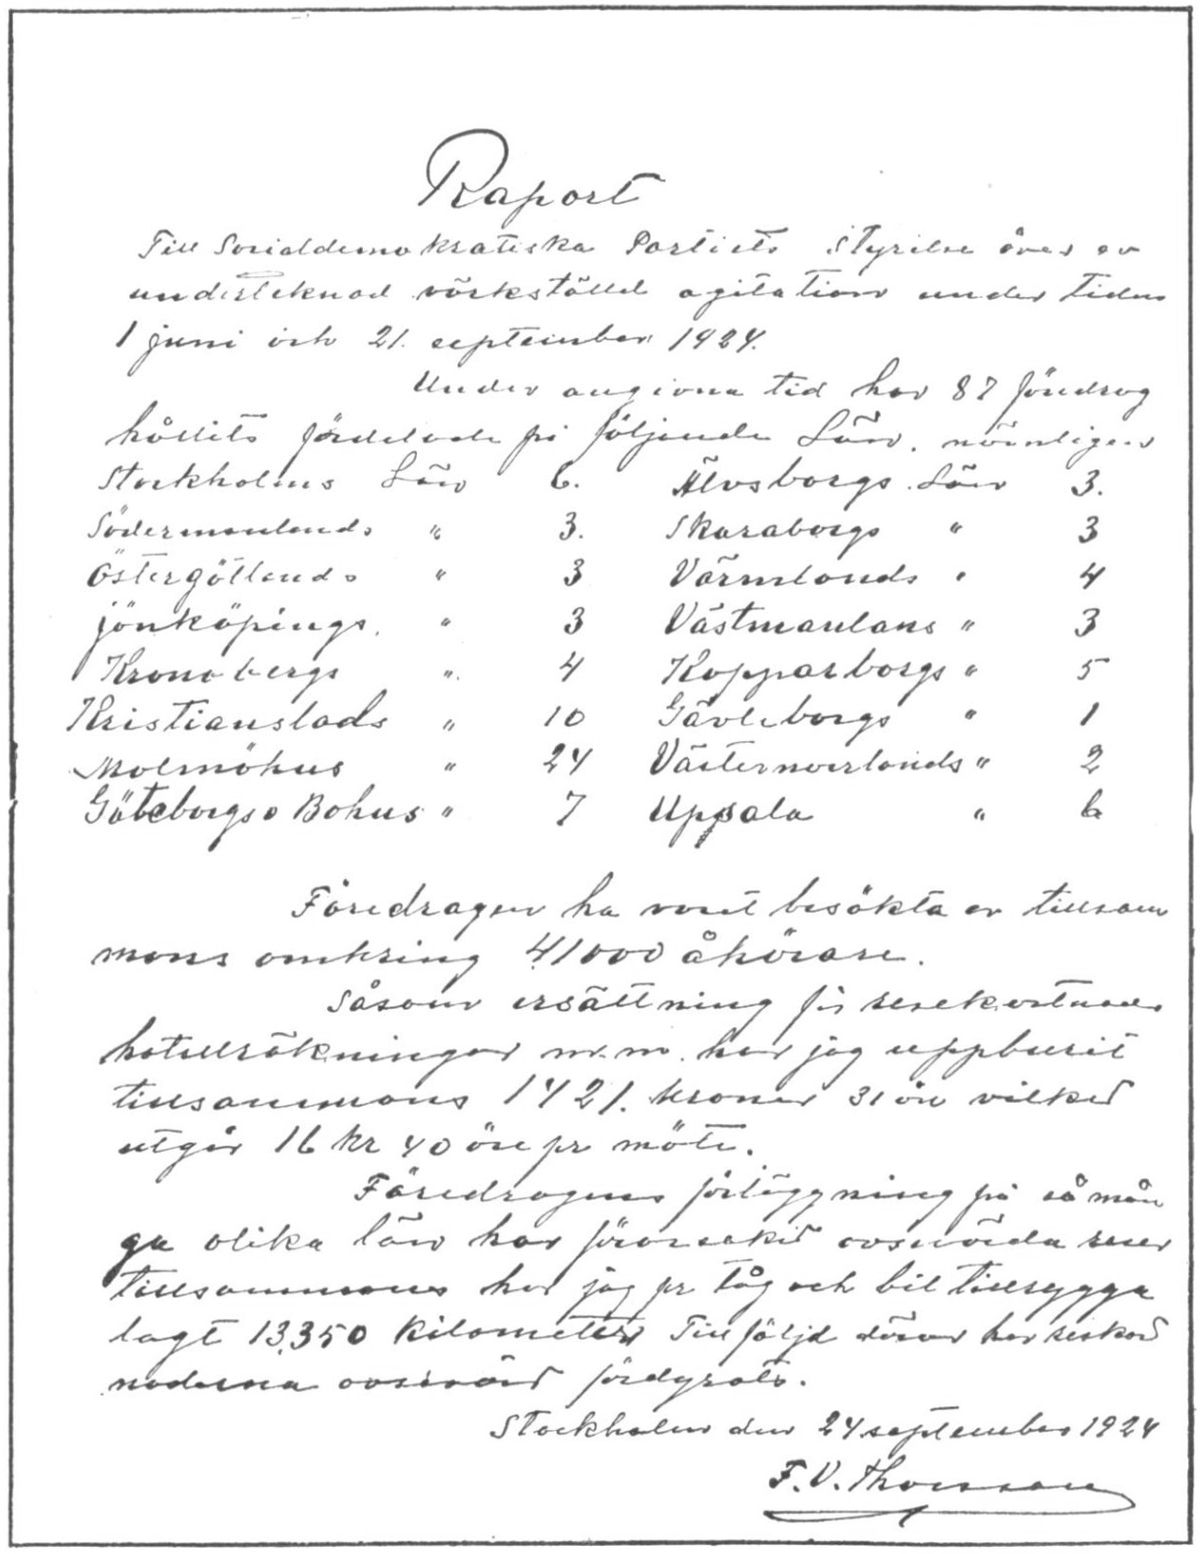 Raport
Till Socialdemokratiska Partiets Styrilse över av
underteknad värkställd agitation under tiden
1 juni och 21. september 1924.
Under angivna tid har 87 föredrag
hållits fördelade på följande Län. nämligen
Stockholms Län 6. Älvsborgs Län 3.
Södermanlands " 3. Skaraborgs " 3
Östergötlands " 3 Värmlands " 4
jönköpings. " 3 Västmanlans " 3
Kronobergs " 4 Kopparborgs " 5
Kristianstads " 10 Gävleborgs " 1
Malmöhus " 24 Västernorlands " 2
Göteborgs o Bohus " 7 Uppsala " 6
Föredragen ha varit besökta av tillsam
mans omkring 41000 åhörare.
Såsom ersättning för resekostnader
hotellräkningar m.m. har jag uppburit
tillsammans 1421. kronor 31 öre vilket
utgör 16 kr 40 öre pr möte.
Föredragens förläggning på så mån
ga olika län har förorsakat avsevärda resor
tillsammans har jag pr tåg och bil tillrygga
lagt 13,350 Kilometer Till följd därav har reskost
naderna avsevärt fördyrats.
Stockholm den 24 september 1924
F. V. Thorsson